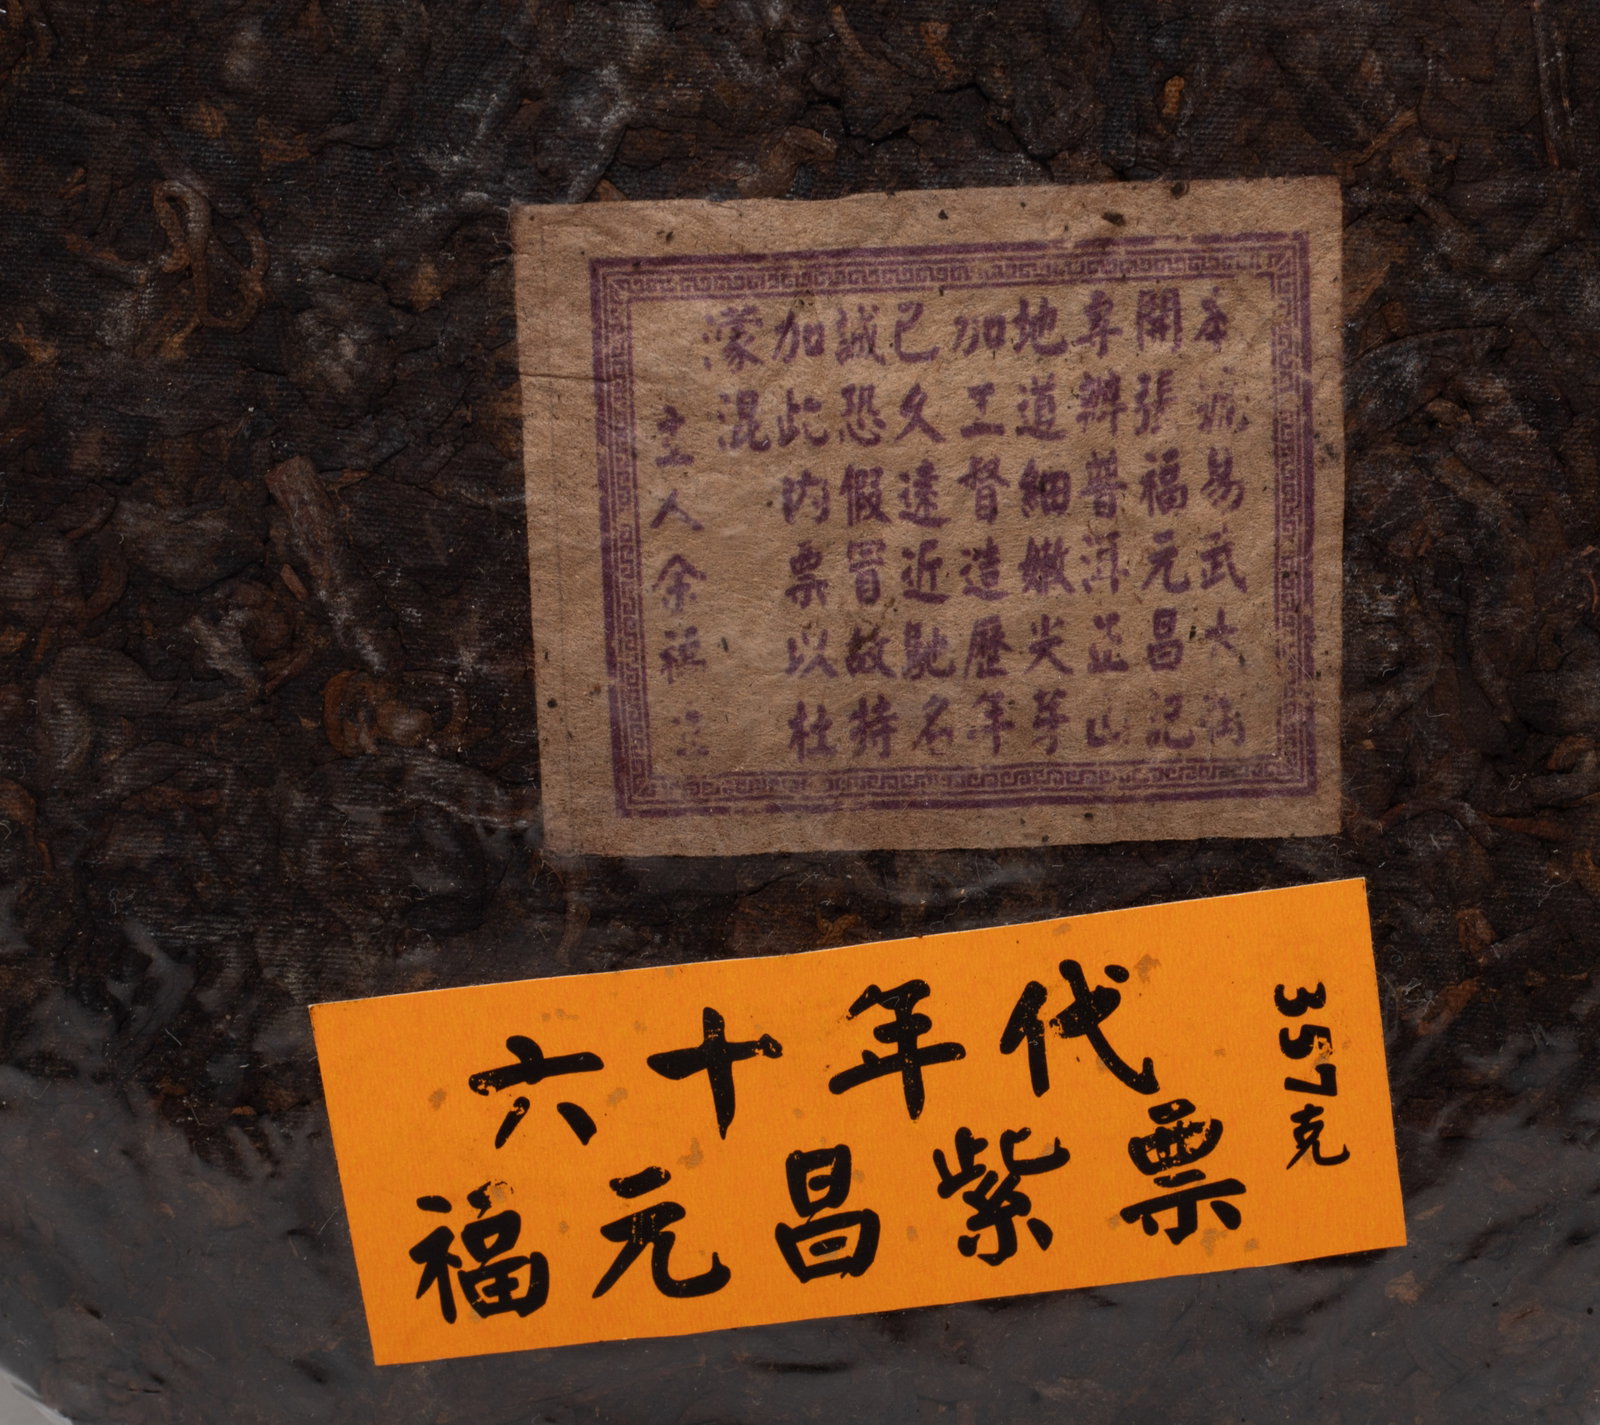 本號易武大街
開張福元昌記
專辦普洱正山
地道細嫩尖芽
加工督造歷年
已久遠近馳名
誠恐假冒故持
加此內票以杜
濛混
主人余福生
六十年代
福元昌紫票
357克